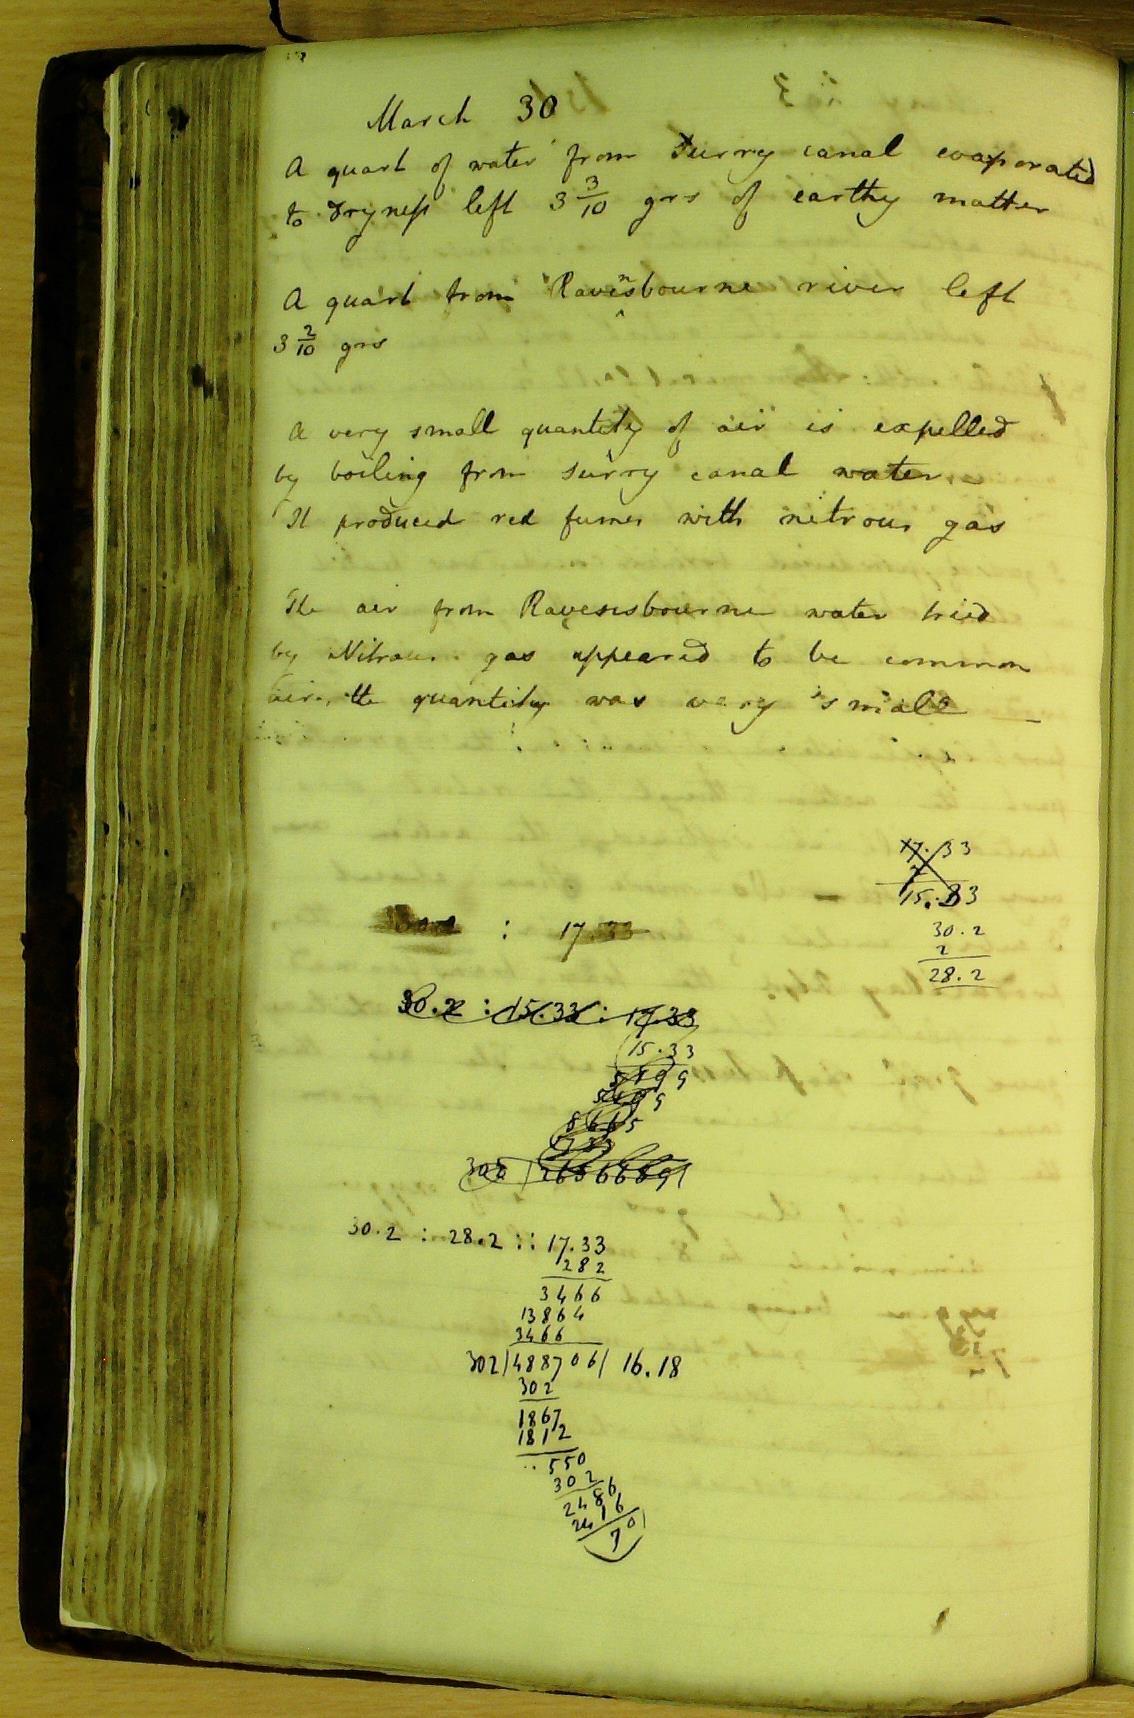 March 30
A quart of water from Surry canal evaporated
to dryness left 3 3/10 grs of earthy matter
A quart from Ravensbourne river left
3 2/10 grs
A very small quantity of air is expelled
by boiling from Surry canal water.
It produced red fumes with nitrous gas
The air from Ravensbourne water tried
by Nitrous gas appeared to be common
air, the quantity was very small
17.33
2
15.33
30.2
2
28.2
: 17.33
30.2 : 15.33 : 17.33
15.33
5199
5199
8665
1733
302 ) 2656689 (
30.2 : 28.2 :: 17.33
282
3466
13864
3466
302 ) 488706 ( 16.18
302
1867
1812
..550
302
2486
2416
70